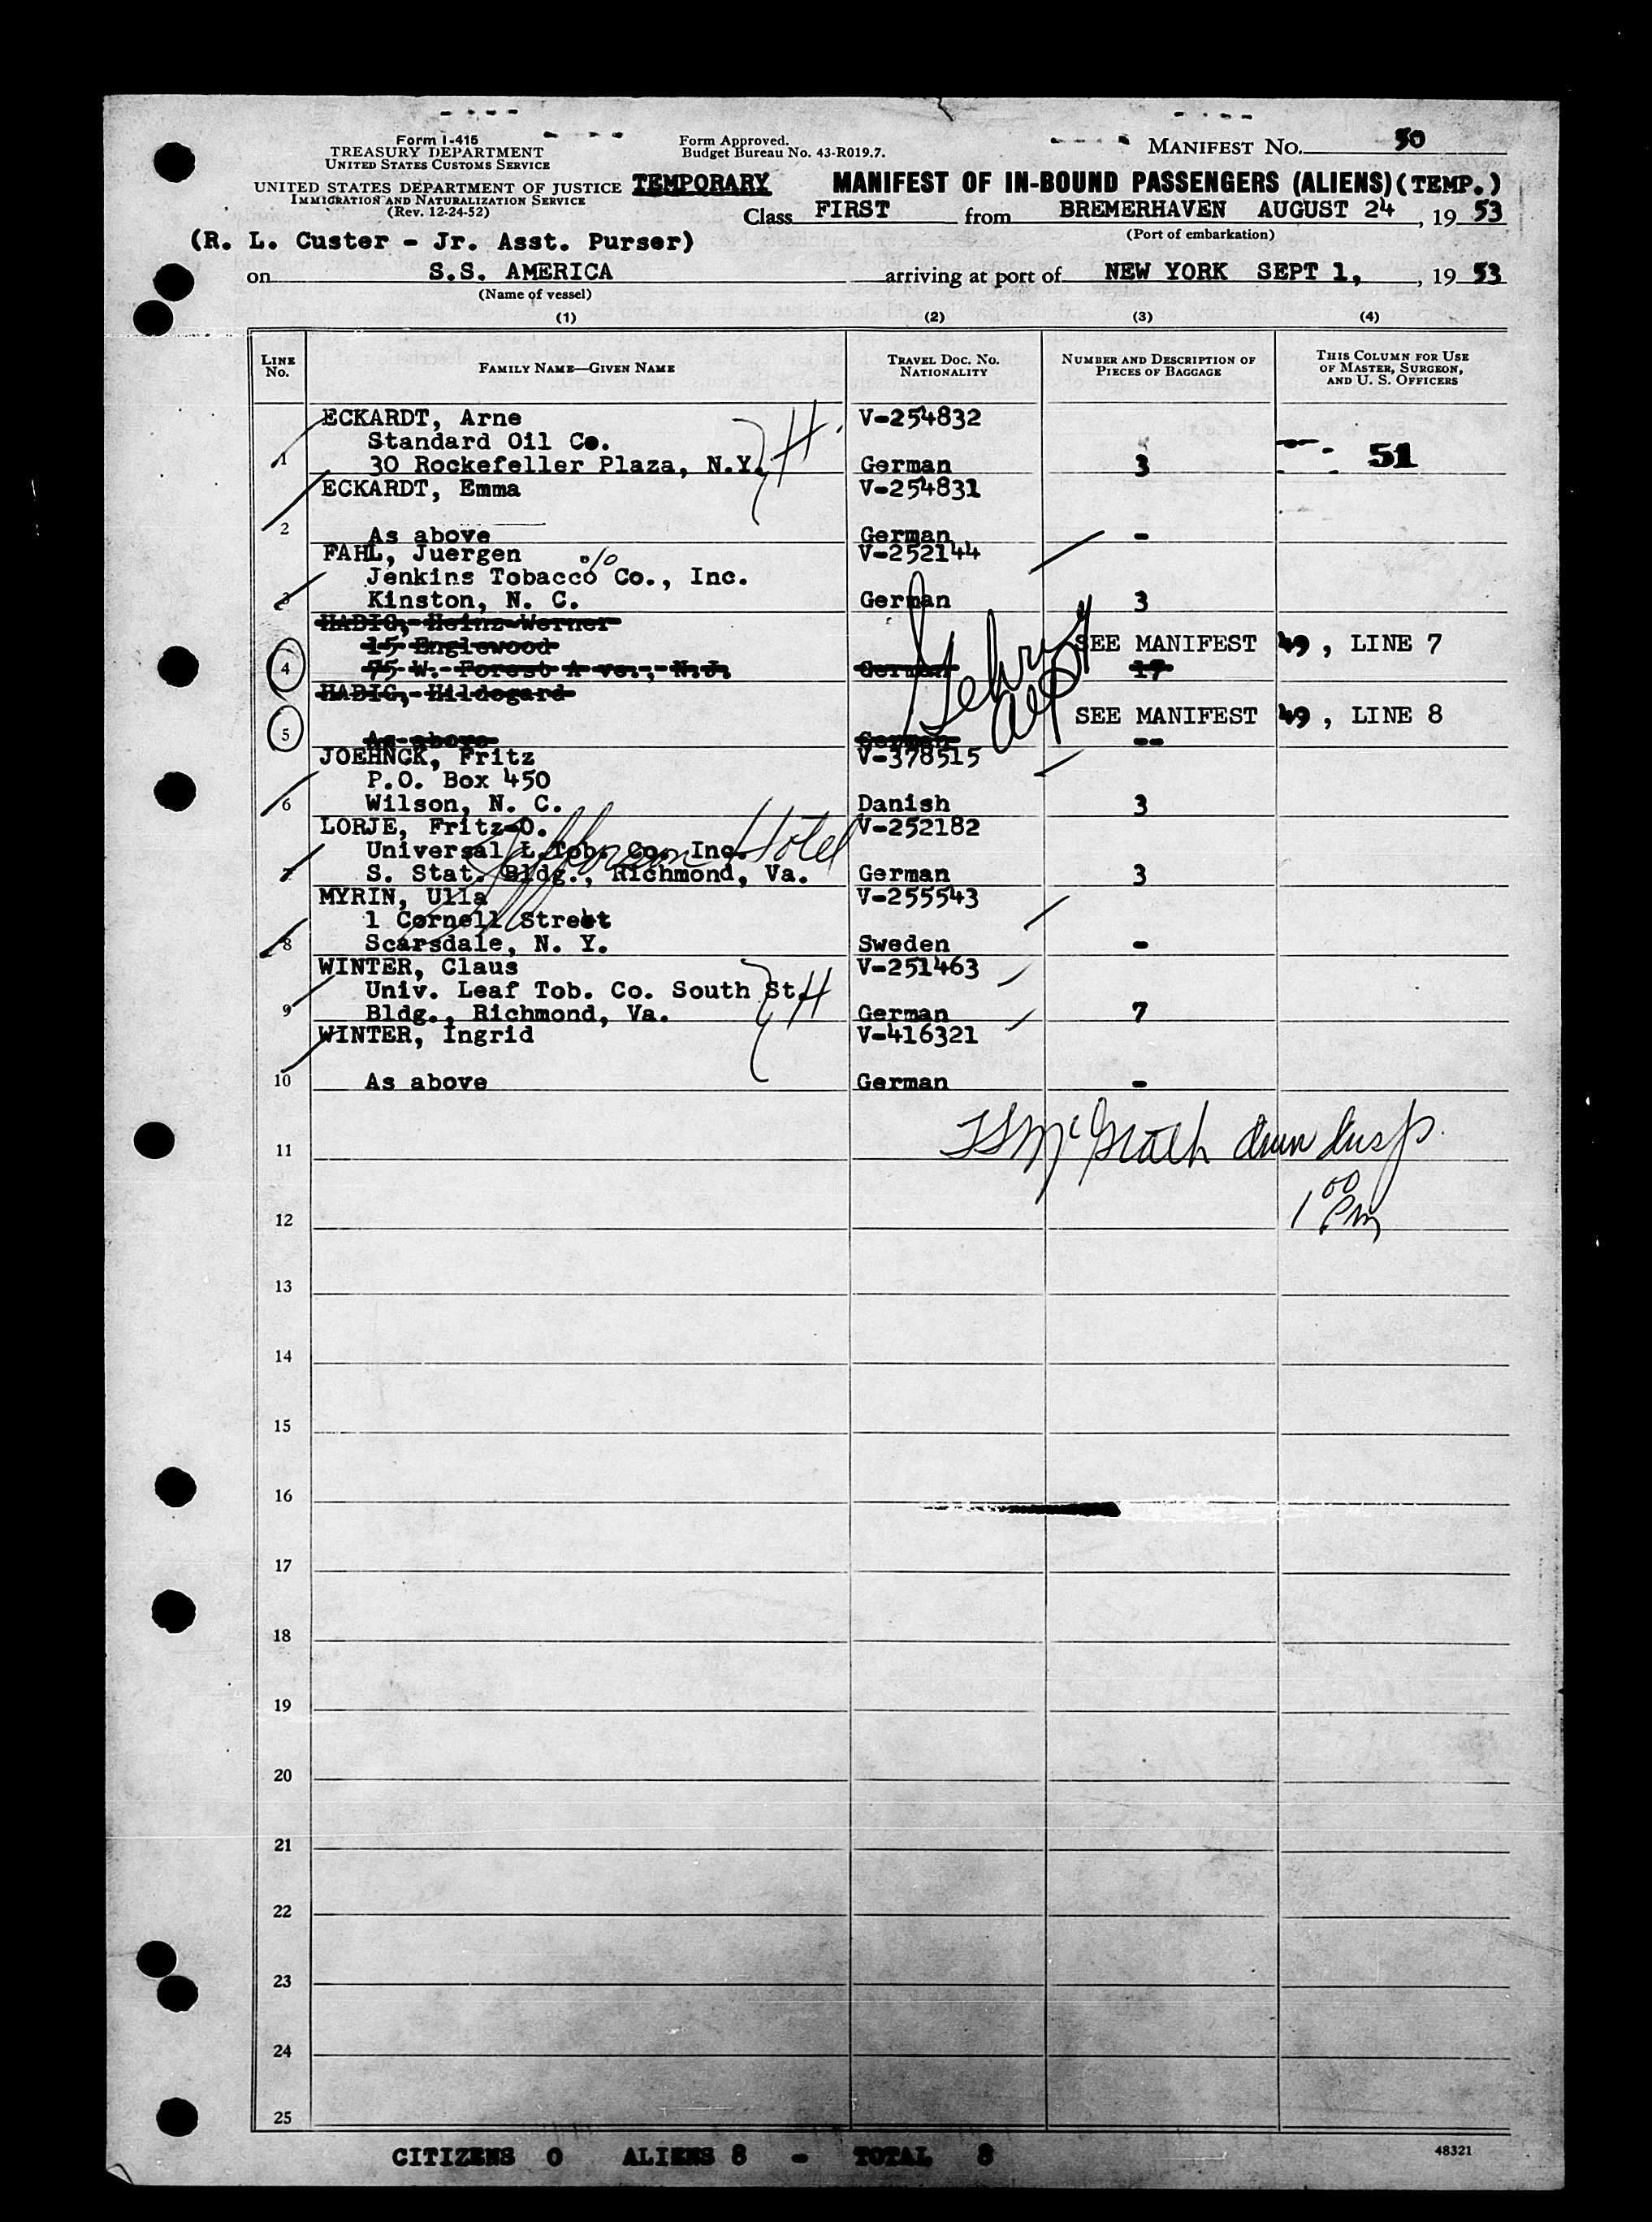 Form I-415
TREASURY DEPARTMENT
UNITED STATES CUSTOMS SERVICE
UNITED STATES DEPARTMENT OF JUSTICE
IMMIGRATION AND NATURALIZATION SERVICE
(Rev. 12-24-52)
Form Approved.
Budget Bureau No. 43-R019.7.
MANIFEST No. 50
TEMPORARY MANIFEST OF IN-BOUND PASSENGERS (ALIENS) (TEMP.)
Class FIRST from BREMERHAVEN AUGUST 24, 19 53
(Port of embarkation)
(R. L. Custer - Jr. Asst. Purser)
on S.S. AMERICA arriving at port of NEW YORK SEPT 1, , 19 53
(Name of vessel)
(1) (2) (3) (4)
LINE No. FAMILY NAME—GIVEN NAME TRAVEL DOC. NO. NATIONALITY NUMBER AND DESCRIPTION OF PIECES OF BAGGAGE THIS COLUMN FOR USE OF MASTER, SURGEON, AND U. S. OFFICERS
ECKARDT, Arne V-254832
Standard Oil Co. H
1 30 Rockefeller Plaza, N.Y. German 3 51
ECKARDT, Emma V-254831
2 As above German -
FAHL, Juergen V-252144
Jenkins Tobacco Co., Inc. %
3 Kinston, N. C. German 3
HABIG, Heinz Werner
15 Englewood SEE MANIFEST 49, LINE 7
4 75 W. Forest A ve., N.J. German 17
HABIG, Hildegard
SEE MANIFEST 49, LINE 8
5 As above German --
JOEHNCK, Fritz V-378515
P.O. Box 450
6 Wilson, N. C. Danish 3
LORJE, Fritz O. V-252182
Universal L.Tob. Co. Inc. Jefferson Hotel
7 S. Stat. Bldg., Richmond, Va. German 3
MYRIN, Ulla V-255543
1 Cornell Street
8 Scarsdale, N. Y. Sweden -
WINTER, Claus V-251463
Univ. Leaf Tob. Co. South St. H
9 Bldg., Richmond, Va. German 7
WINTER, Ingrid V-416321
10 As above German -
McGrath
11
1 00 Pm
12
13
14
15
16
17
18
19
20
21
22
23
24
25
CITIZENS 0 ALIENS 8 - TOTAL 8
48321